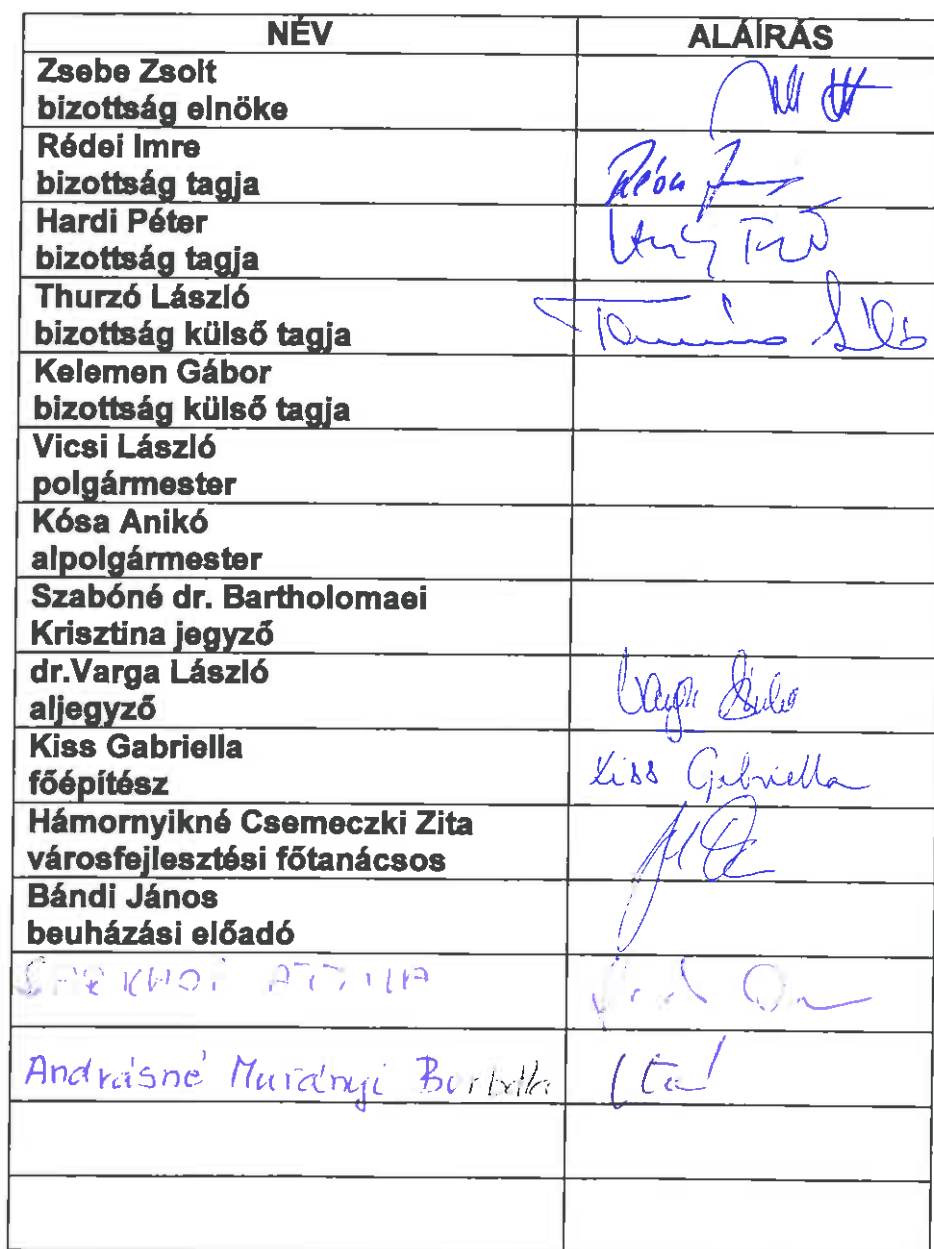 NÉV ALÁÍRÁS
Zsebe Zsolt
bizottság elnöke
Rédei Imre
bizottság tagja
Hardi Péter
bizottság tagja
Thurzó László
bizottság külső tagja
Kelemen Gábor
bizottság külső tagja
Vicsi László
polgármester
Kósa Anikó
alpolgármester
Szabóné dr. Bartholomaei
Krisztina jegyző
dr.Varga László
aljegyző
Kiss Gabriella
főépítész Kiss Gabriella
Hámornyikné Csemeczki Zita
városfejlesztési főtanácsos
Bándi János
beuházási előadó
ATTILA
Andrásné Murányi Borbála